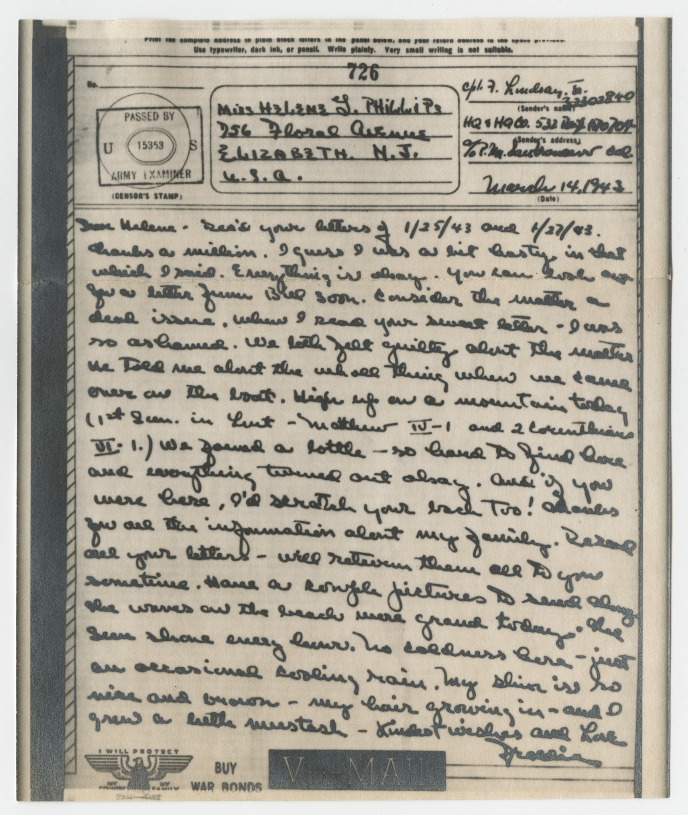 Print the complete address in plain block letters in the panel below, and your return address in the space provided.
Use typewriter, dark ink, or pencil. Write plainly. Very small writing is not suitable.
726
No.
PASSED BY
U 15353 S
ARMY EXAMINER
(CENSOR'S STAMP)
Miss HELENE J. PHILLIPS
756 Floral Avenue
ELIZABETH, N.J.
U.S.A.
Cpl. F. Lindsay, Jr.
32302840
(Sender's name)
HQ & HQ Co. 532
(Sender's address)
c/o P.M. San Francisco Cal
March 14, 1943
(Date)
Dear Helene - Rec'd your letters of 1/25/43 and 1/27/43.
thanks a million. I guess I was a bit hasty in that
which I said. Everything is okay. You can look out
for a letter from Bill soon. Consider the matter a
dead issue. When I read your sweet letter - I was
so ashamed. We both felt guilty about the matter
He told me about the whole thing when we came
over on the boat. High up on a mountain today
(1st Sun. in Lent - Matthew IV-1 and 2 Corinthians
VI-1.) We found a bottle - so hard to find here
and everything turned out okay. And if you
were here, I'd scratch your back too! Thanks
for all the information about my family. Reread
all your letters - will return them all to you
sometime. Have a couple pictures to send along
The waves on the beach were grand today. The
Sun shone every hour. No coldness here - just
an occasional cooling rain. My skin is so
nice and brown - my hair growing in - and I
grew a little mustach - Kindest wishes and Love
Freddie
I WILL PROTECT
MY COUNTRY MY FAMILY
BUY
WAR BONDS
V - MAIL